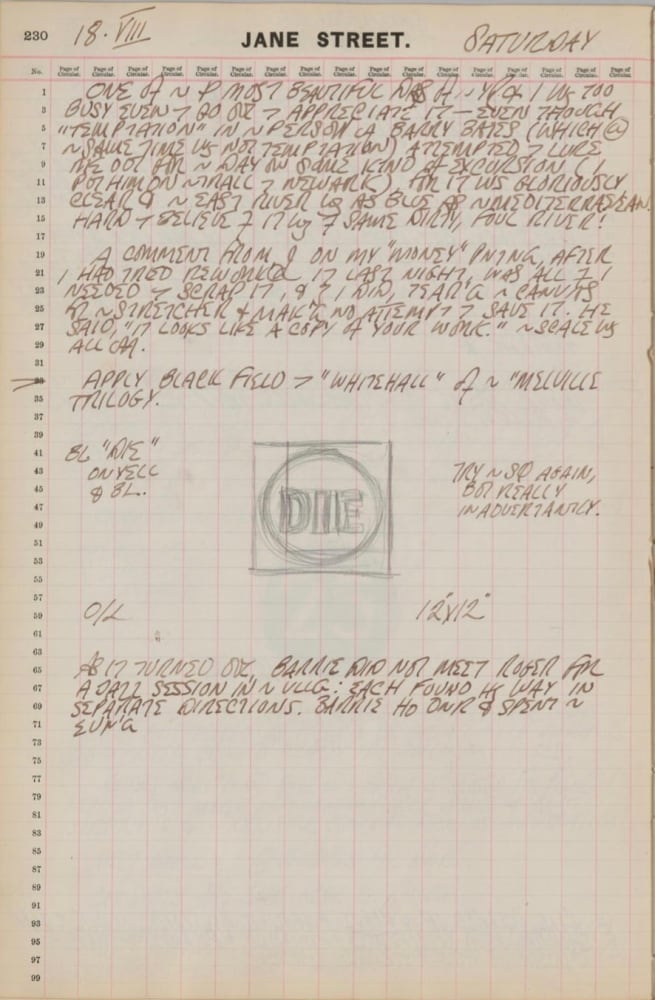 230 18·VIII JANE STREET. SATURDAY
No. Page of Circular. Page of Circular. Page of Circular. Page of Circular. Page of Circular. Page of Circular. Page of Circular. Page of Circular. Page of Circular. Page of Circular. Page of Circular. Page of Circular. Page of Circular. Page of Circular. Page of Circular. Page of Circular. Page of Circular.
1 ONE of ~ MOST BEAUTIFUL of ~ YR & I WS TOO
3 BUSY EVEN → GO OUT → APPRECIATE IT — EVEN THOUGH
5 "TEMPTATION" IN ~ PERSON of BARRY BATES (WHICH @
7 ~ SAME TIME WS NOT TEMPTATION) ATTEMPTED → LURE
9 ME OUT FOR ~ DAY ON SOME KIND of EXCURSION (I
11 PUT HIM ON ~ TRAIL → NEWARK). FOR IT WS GLORIOUSLY
13 CLEAR & ~ EAST RIVER WS AS BLUE AS ~ MEDITERRANEAN.
15 HARD → BELIEVE IT WS SAME DIRTY, FOUL RIVER!
17
19 A COMMENT FROM ON MY "MONEY" PNTNG, AFTER
21 I HAD TRIED REWORKING IT LAST NIGHT, WAS ALL I
23 NEEDED → SCRAP IT, & I DID, TEAR'G ~ CANVAS
25 ~ STRETCHER & MAK'G NO ATTEMPT → SAVE IT. HE
27 SAID, "IT LOOKS LIKE A COPY of YOUR WORK." ~ SCALE WS
29 ALL OFF.
31
33 APPLY BLACK FIELD → "WHITEHALL" of ~ "MELVILLE
35 TRILOGY.
37
39
41 BL "DIE"
43 ON YELL TRY ~ SQ AGAIN,
45 & BL. DIE BUT REALLY
47 INADVERTANTLY.
49
51
53
55
57
59 O/L 12"X12"
61
63
65 AS IT TURNED OUT, BARRIE DID NOT MEET ROGER FOR
67 A JAZZ SESSION IN ~ VLLG: EACH FOUND HS WAY IN
69 SEPARATE DIRECTIONS. BARRIE HD DNR & SPENT ~
71 EVN'G
73
75
77
79
81
83
85
87
89
91
93
95
97
99